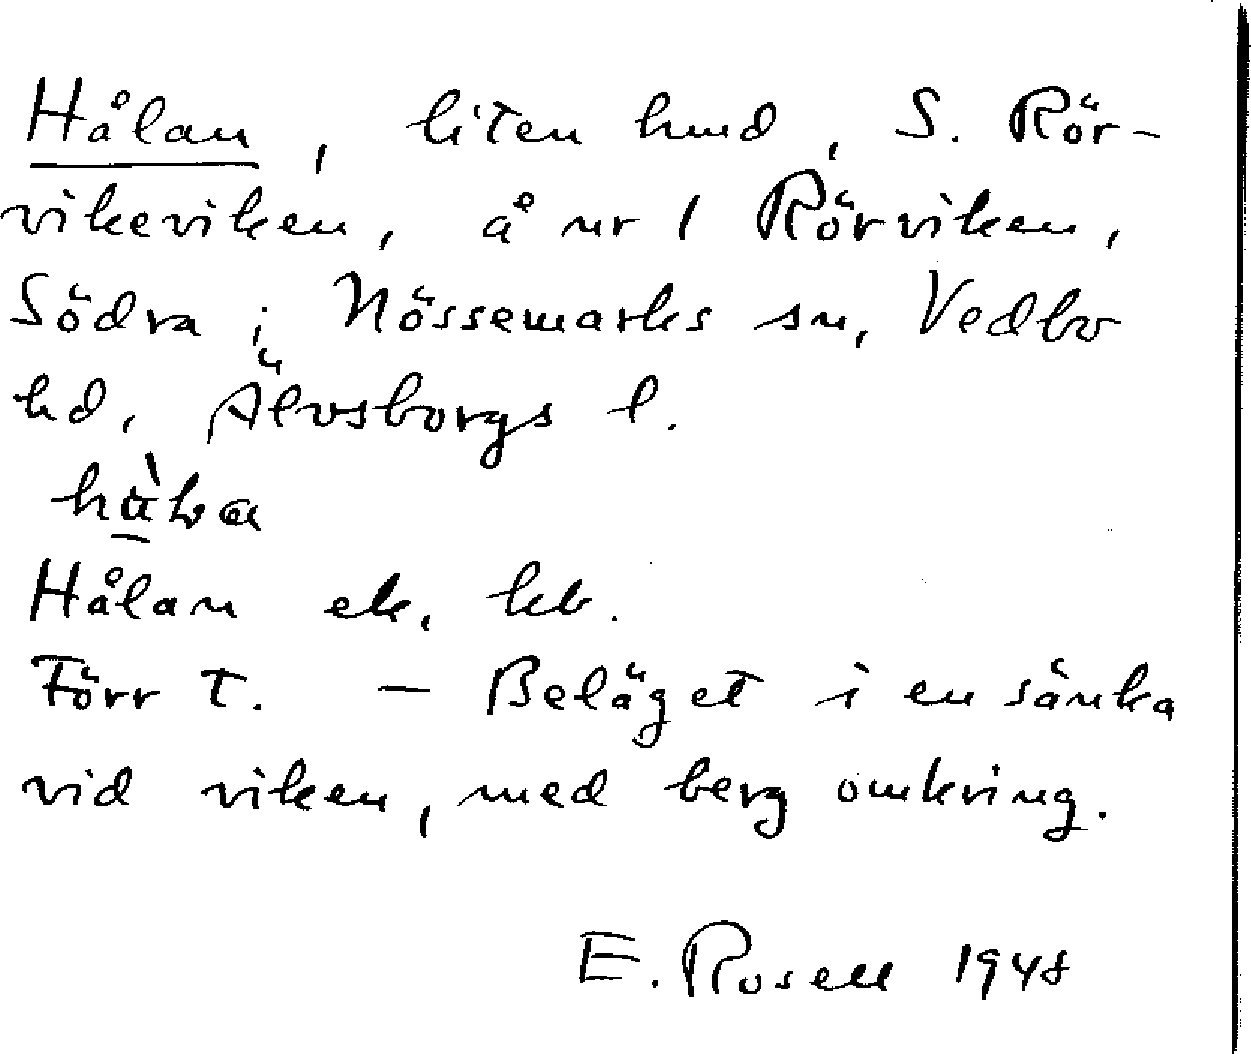 Hålan, liten hmd, S. Rör-
vikeviken, å nr 1 Rörviken,
Södra i Nössemarks sn, Vedbo
hd, Älvsborgs l.
Hålan ek. kb.
Förr t. — Beläget i en sänka
vid viken, med berg omkring.
E. Rosell 1948